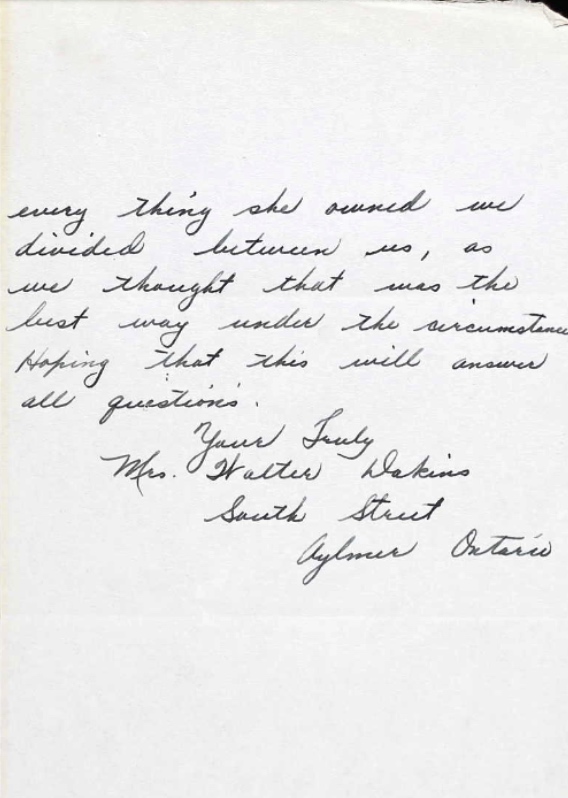 every thing she owned we
divided between us, as
we thought that was the
best way under the circumstance
Hoping that this will answer
all questions.
Your Truly
Mrs. Walter Dakins
South Street
Aylmer Ontario